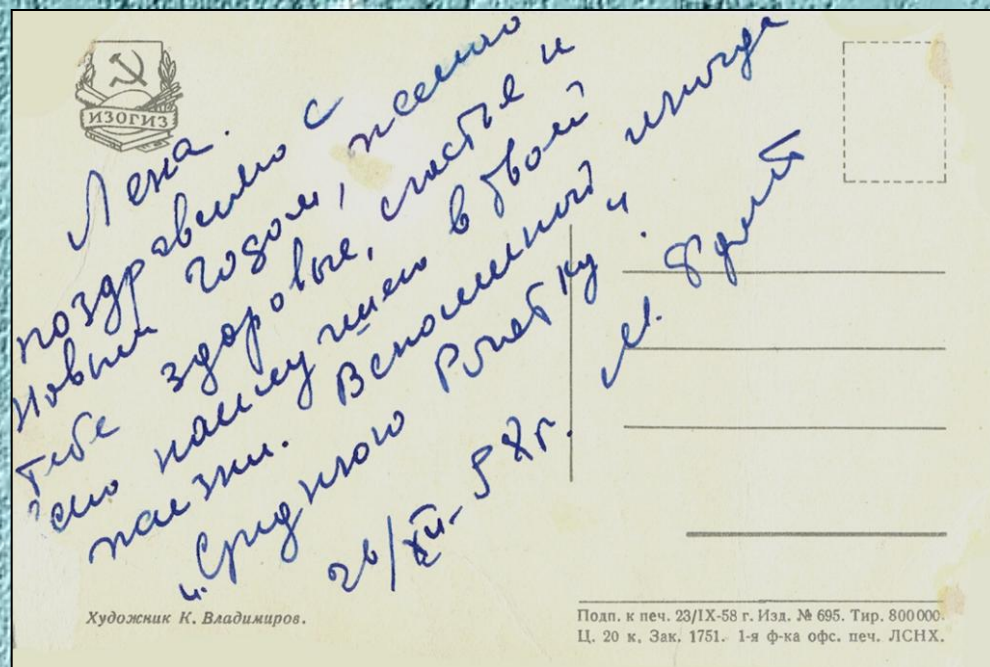 ИЗОГИЗ
Лена.
поздравляю с
новым годом, желаю
тебе здоровье, счастье и
всего наилучшего в твоей
жизни. Вспоминай иногда
"Среднюю Рогатку".
М.
26/XII-58г.
Художник К. Владимиров.
Подп. к печ. 23/IX-58 г. Изд. № 695. Тир. 800 000.
Ц. 20 к. Зак. 1751. 1-я ф-ка офс. печ. ЛСНХ.